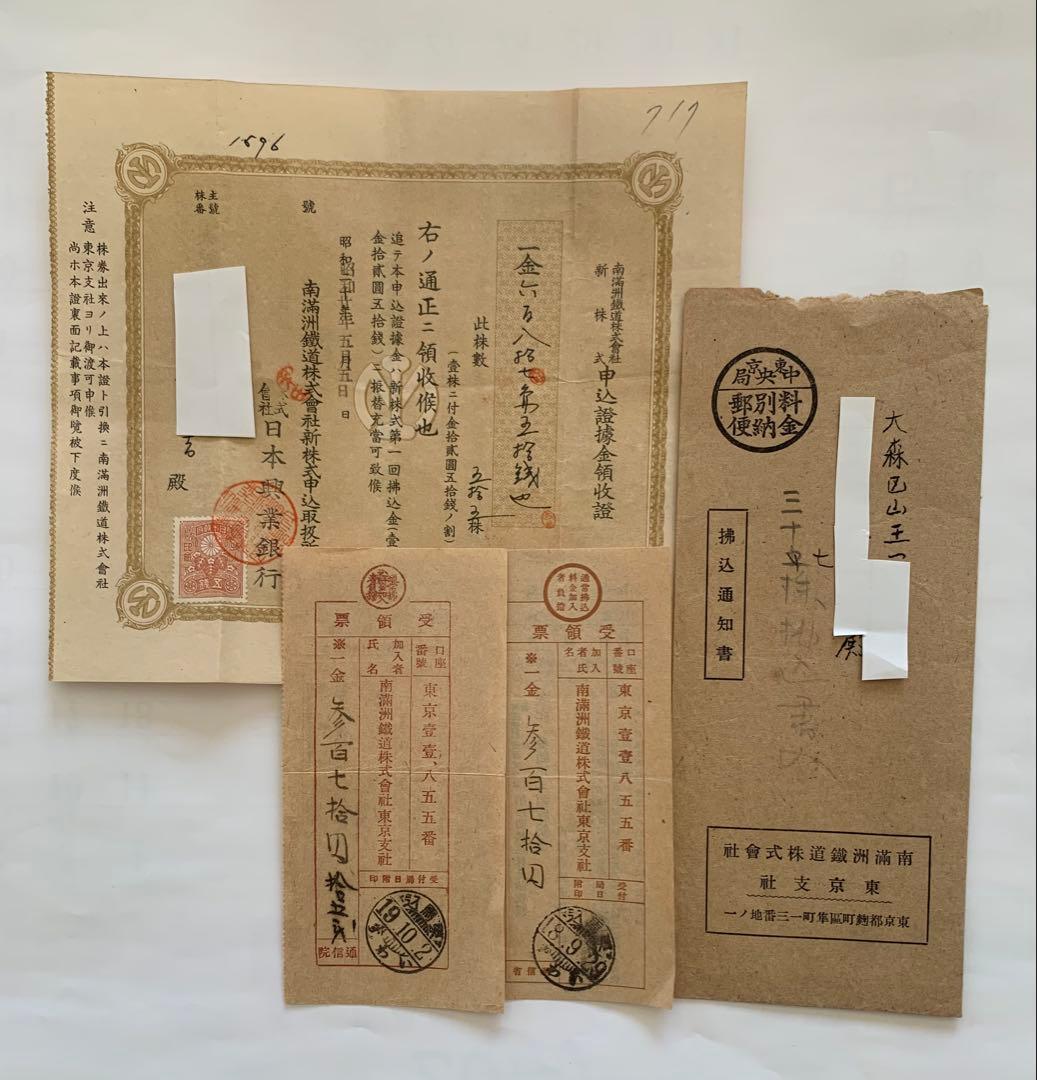 717
1596
南滿洲鐵道株式會社
新株式
申込證據金領收證
一金六百八拾七圓五拾錢也
此株數
五拾五株
(壹株ニ付金拾貳圓五拾錢ノ割)
右ノ通正ニ領收候也
追テ本申込證據金ハ新株式第一回拂込金(壹
金拾貳圓五拾錢)ニ振替充當可致候
昭和
年五月五日
南滿洲鐵道株式會社新株式申込取扱所
株式會社
日本興業銀行
號
株主番號
殿
注意
株券出來ノ上ハ本證ト引換ニ南滿洲鐵道株式會社
東京支社ヨリ御渡可申候
尚ホ本證裏面記載事項御覽被下度候
東京中央局
料金別納郵便
大森區山王
殿
拂込通知書
南滿洲鐵道株式會社
東京支社
東京都麴町區隼町一三番地ノ一
通常拂込料金加入者負擔
受領票
口座番號
東京壹壹八五五番
加入者氏名
南滿洲鐵道株式會社東京支社
※一金
參百七拾円
受付局日附印
18.9
信省
受領票
口座番號
東京壹壹、八五五番
加入者氏名
南滿洲鐵道株式會社東京支社
※一金
參百七拾円拾五戔
受付局日附印
19.10.2
通信院